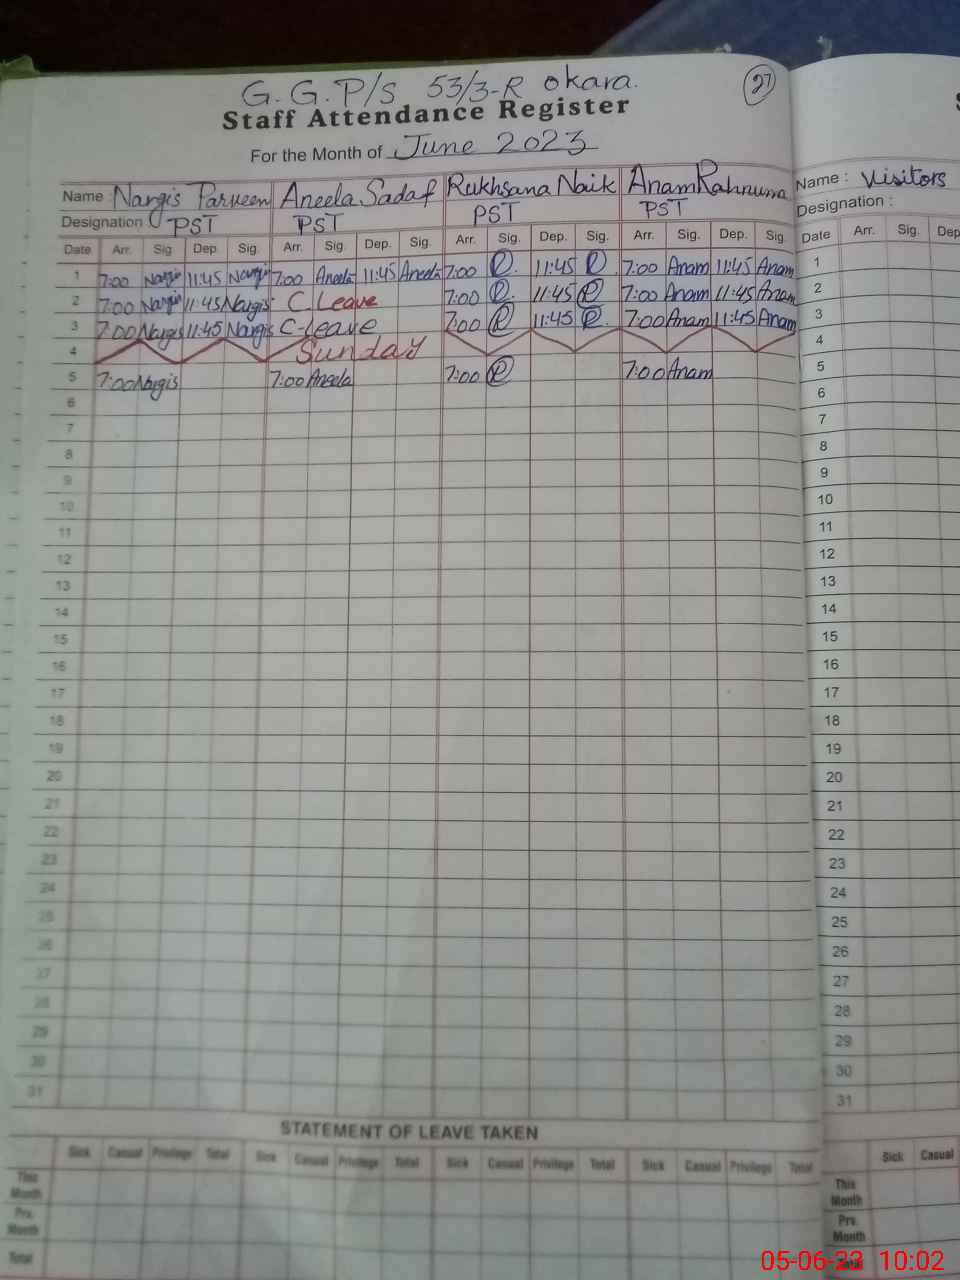 G.G.P/S 53/3-R okara. 27
Staff Attendance Register
For the Month of June 2023
Name : Nargis Parveen Aneela Sadaf Rukhsana Naik Anam Rahnuma Name : Visitors
Designation : PST PST PST PST Designation :
Date Arr. Sig. Dep. Sig. Arr. Sig. Dep. Sig. Arr. Sig. Dep. Sig. Arr. Sig. Dep. Sig. Date Arr. Sig. Dep
1 7:00 Nargis 11:45 Nargis 7:00 Aneela 11:45 Aneela 7:00 R 11:45 R 7:00 Anam 11:45 Anam 1
2 7:00 Nargis 11:45 Nargis C Leave 7:00 R 11:45 R 7:00 Anam 11:45 Anam 2
3 7:00 Nargis 11:45 Nargis C-Leave 7:00 R 11:45 R 7:00 Anam 11:45 Anam 3
4 Sunday 4
5 7:00 Nargis 7:00 Aneela 7:00 R 7:00 Anam 5
6 6
7 7
8 8
9 9
10 10
11 11
12 12
13 13
14 14
15 15
16 16
17 17
18 18
19 19
20 20
21 21
22 22
23 23
24 24
25 25
26 26
27 27
28 28
29 29
30 30
31 31
STATEMENT OF LEAVE TAKEN
Sick Casual Privilege Total Sick Casual Privilege Total Sick Casual Privilege Total Sick Casual Privilege Total Sick Casual
This Month This Month
Prv. Month Prv. Month
Total Total
05-06-23 10:02